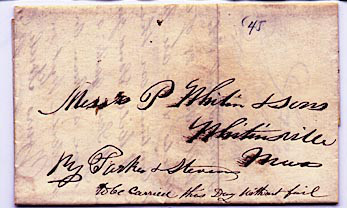 45
Messrs P Whitin & Sons
Whitinsville
Mass
By Parker & Stevens
to be carried this Day without fail